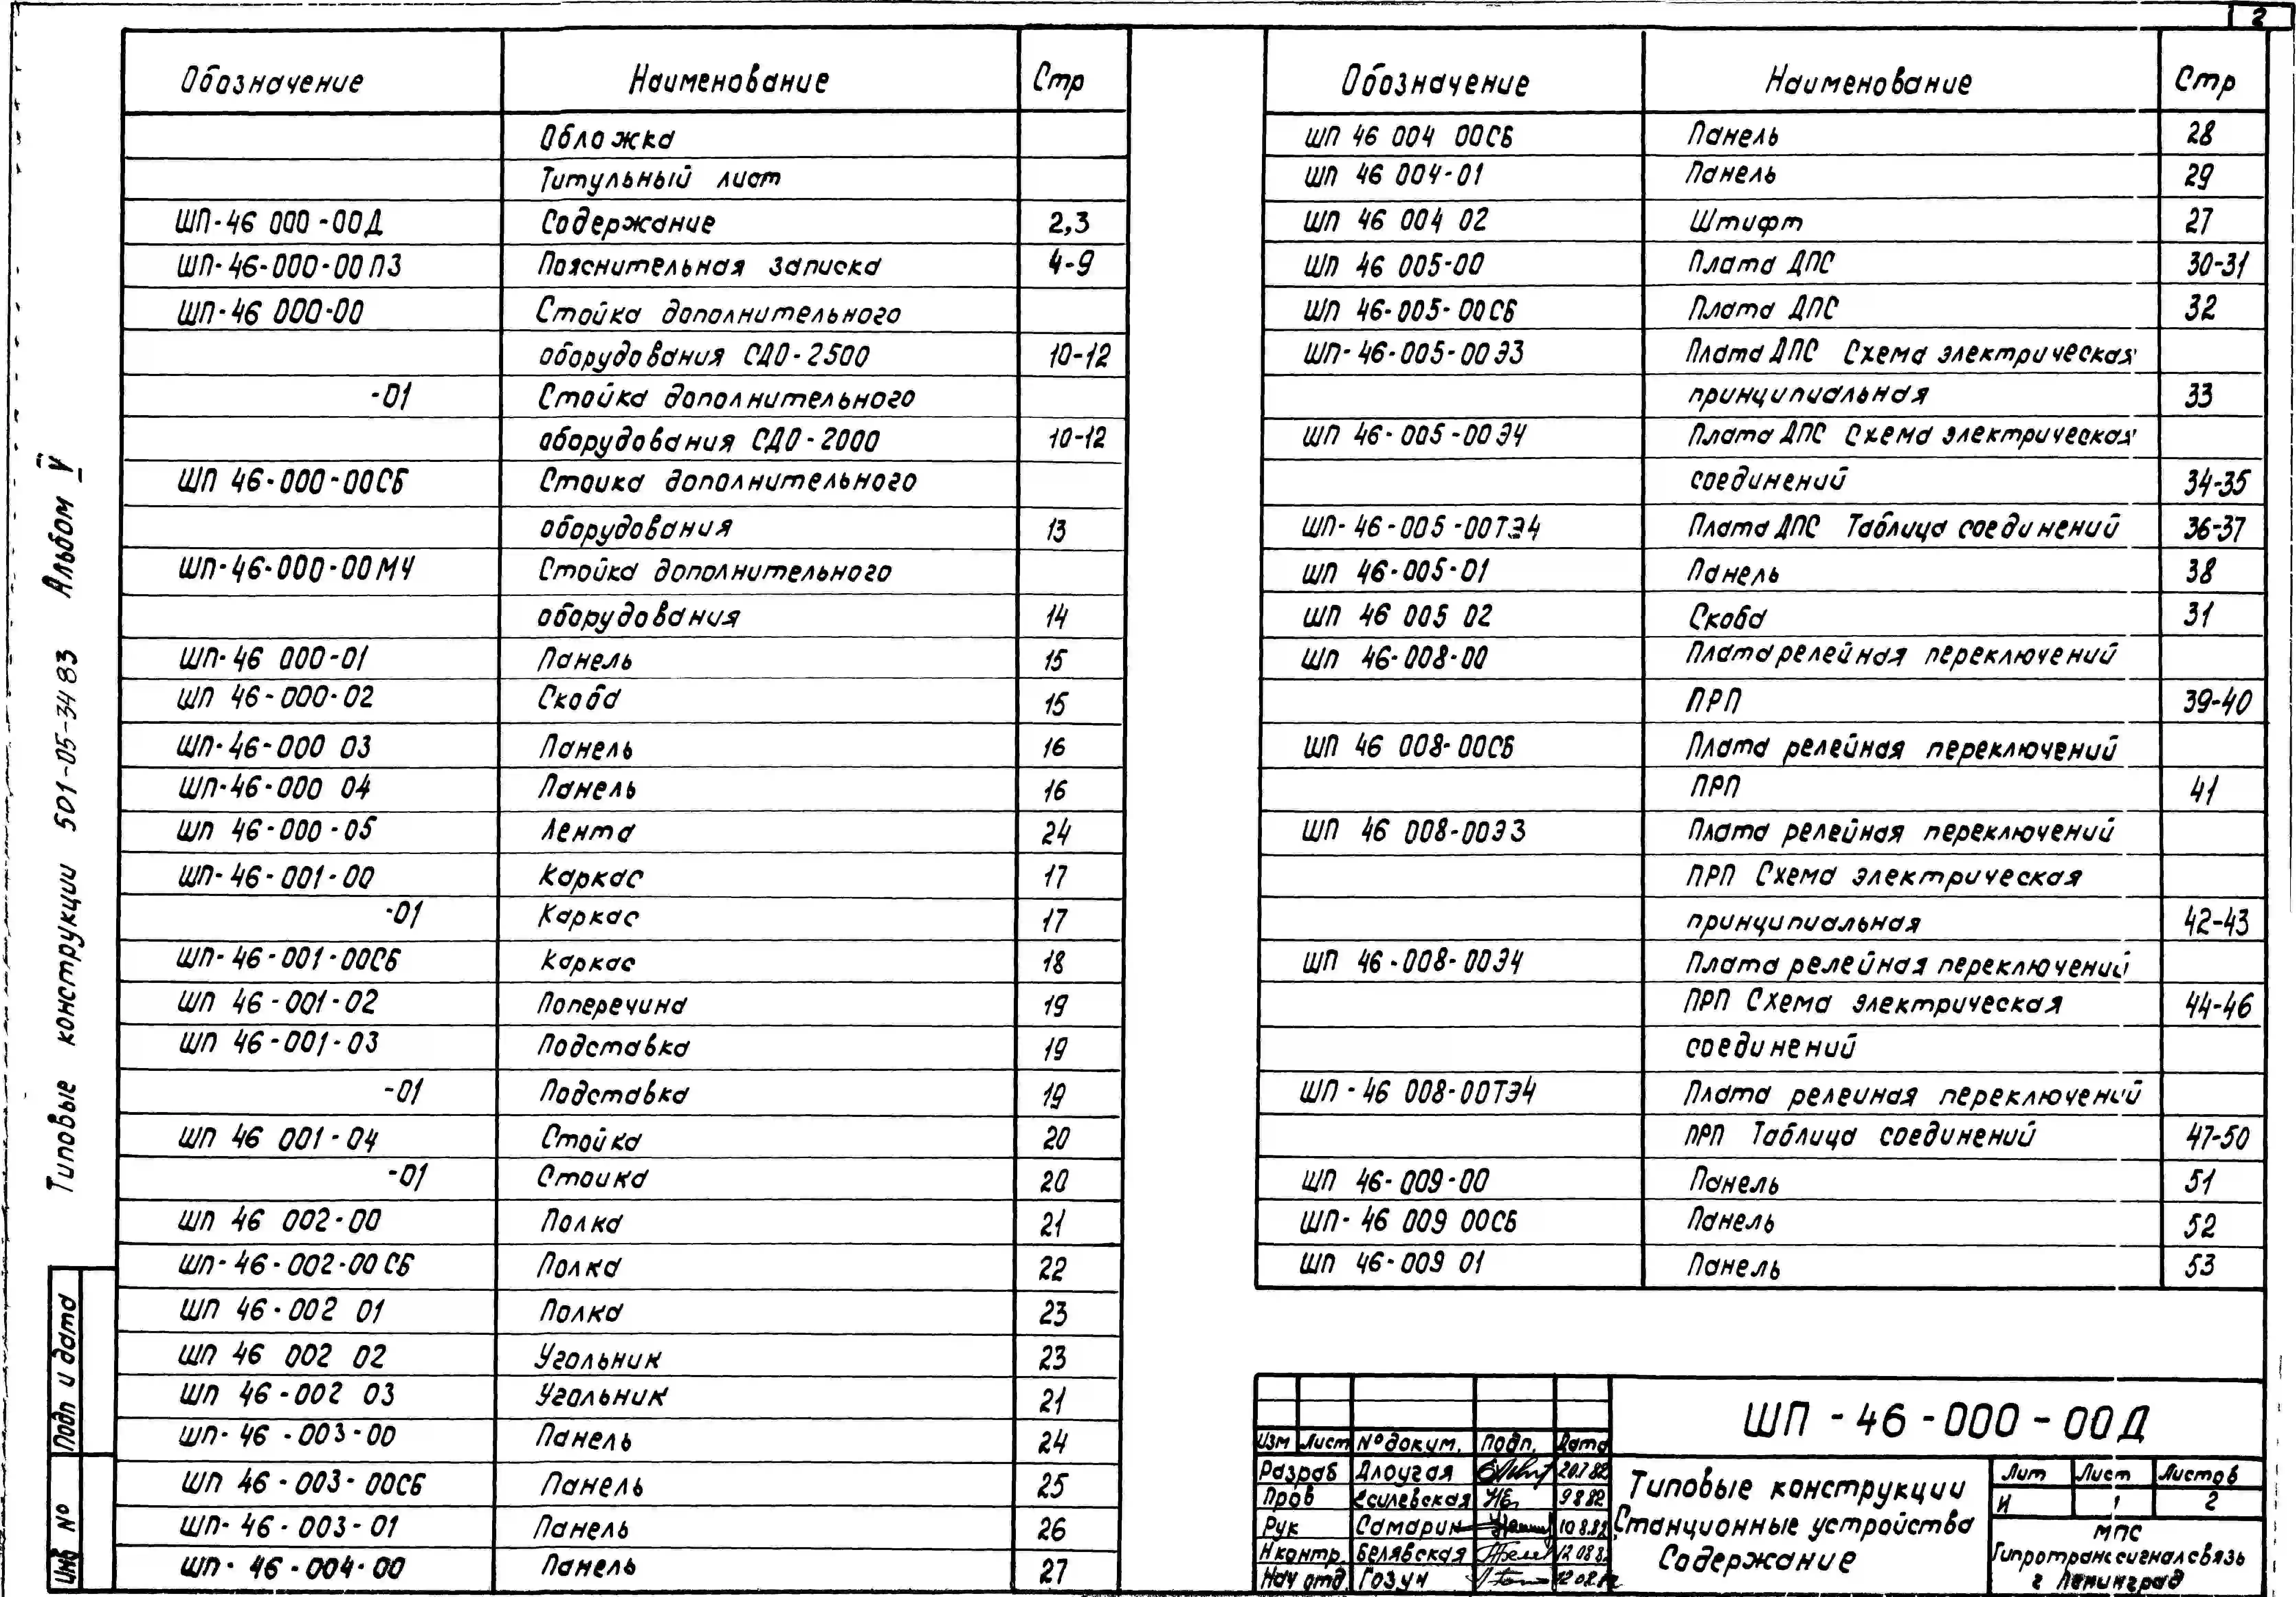 2
Обозначение Наименование Стр
Обложка
Титульный лист
ШП-46 000-00Д Содержание 2,3
ШП-46-000-00ПЗ Пояснительная записка 4-9
ШП-46 000-00 Стойка дополнительного
оборудования СДО-2500 10-12
-01 Стойка дополнительного
оборудования СДО-2000 10-12
ШП 46-000-00СБ Стоика дополнительного
оборудования 13
ШП-46-000-00МЧ Стойка дополнительного
оборудования 14
ШП-46 000-01 Панель 15
ШП 46-000-02 Скоба 15
ШП-46-000 03 Панель 16
ШП-46-000 04 Панель 16
ШП 46-000-05 Лента 24
ШП-46-001-00 Каркас 17
-01 Каркас 17
ШП-46-001-00СБ Каркас 18
ШП 46-001-02 Поперечина 19
ШП 46-001-03 Подставка 19
-01 Подставка 19
ШП 46 001-04 Стойка 20
-01 Стоика 20
ШП 46 002-00 Полка 21
ШП-46-002-00СБ Полка 22
ШП 46-002 01 Полка 23
ШП 46 002 02 Угольник 23
ШП 46-002 03 Угольник 21
ШП-46-003-00 Панель 24
ШП 46-003-00СБ Панель 25
ШП-46-003-01 Панель 26
ШП-46-004-00 Панель 27
Обозначение Наименование Стр
ШП 46 004 00СБ Панель 28
ШП 46 004-01 Панель 29
ШП 46 004 02 Штифт 27
ШП 46 005-00 Плата ДПС 30-31
ШП 46-005-00СБ Плата ДПС 32
ШП-46-005-00Э3 Плата ДПС Схема электрическая
принципиальная 33
ШП 46-005-00Э4 Плата ДПС Схема электрическая
соединений 34-35
ШП-46-005-00ТЭ4 Плата ДПС Таблица соединений 36-37
ШП 46-005-01 Панель 38
ШП 46 005 02 Скоба 31
ШП 46-008-00 Плата релейная переключений
ПРП 39-40
ШП 46 008-00СБ Плата релейная переключений
ПРП 41
ШП 46 008-00Э3 Плата релейная переключений
ПРП Схема электрическая
принципиальная 42-43
ШП 46-008-00Э4 Плата релейная переключений
ПРП Схема электрическая 44-46
соединений
ШП-46 008-00ТЭ4 Плата релеиная переключений
ПРП Таблица соединений 47-50
ШП 46-009-00 Панель 51
ШП-46 009 00СБ Панель 52
ШП 46-009 01 Панель 53
Типовые конструкции 501-05-34 83 Альбом V
Подп и дата
Инв №
Изм Лист № докум. Подп. Дата
Разраб Длоугая 20.7.82
Пров Есилевская 9 8 82
Рук Самарин 10 8.82
Н контр. Белявская 12 08 82
Нач отд. Гозун 12 08.82
ШП-46-000-00Д
Типовые конструкции
Станционные устройства
Содержание
Лит Лист Листов
И 1 2
МПС
Гипротранссигналсвязь
г Ленинград